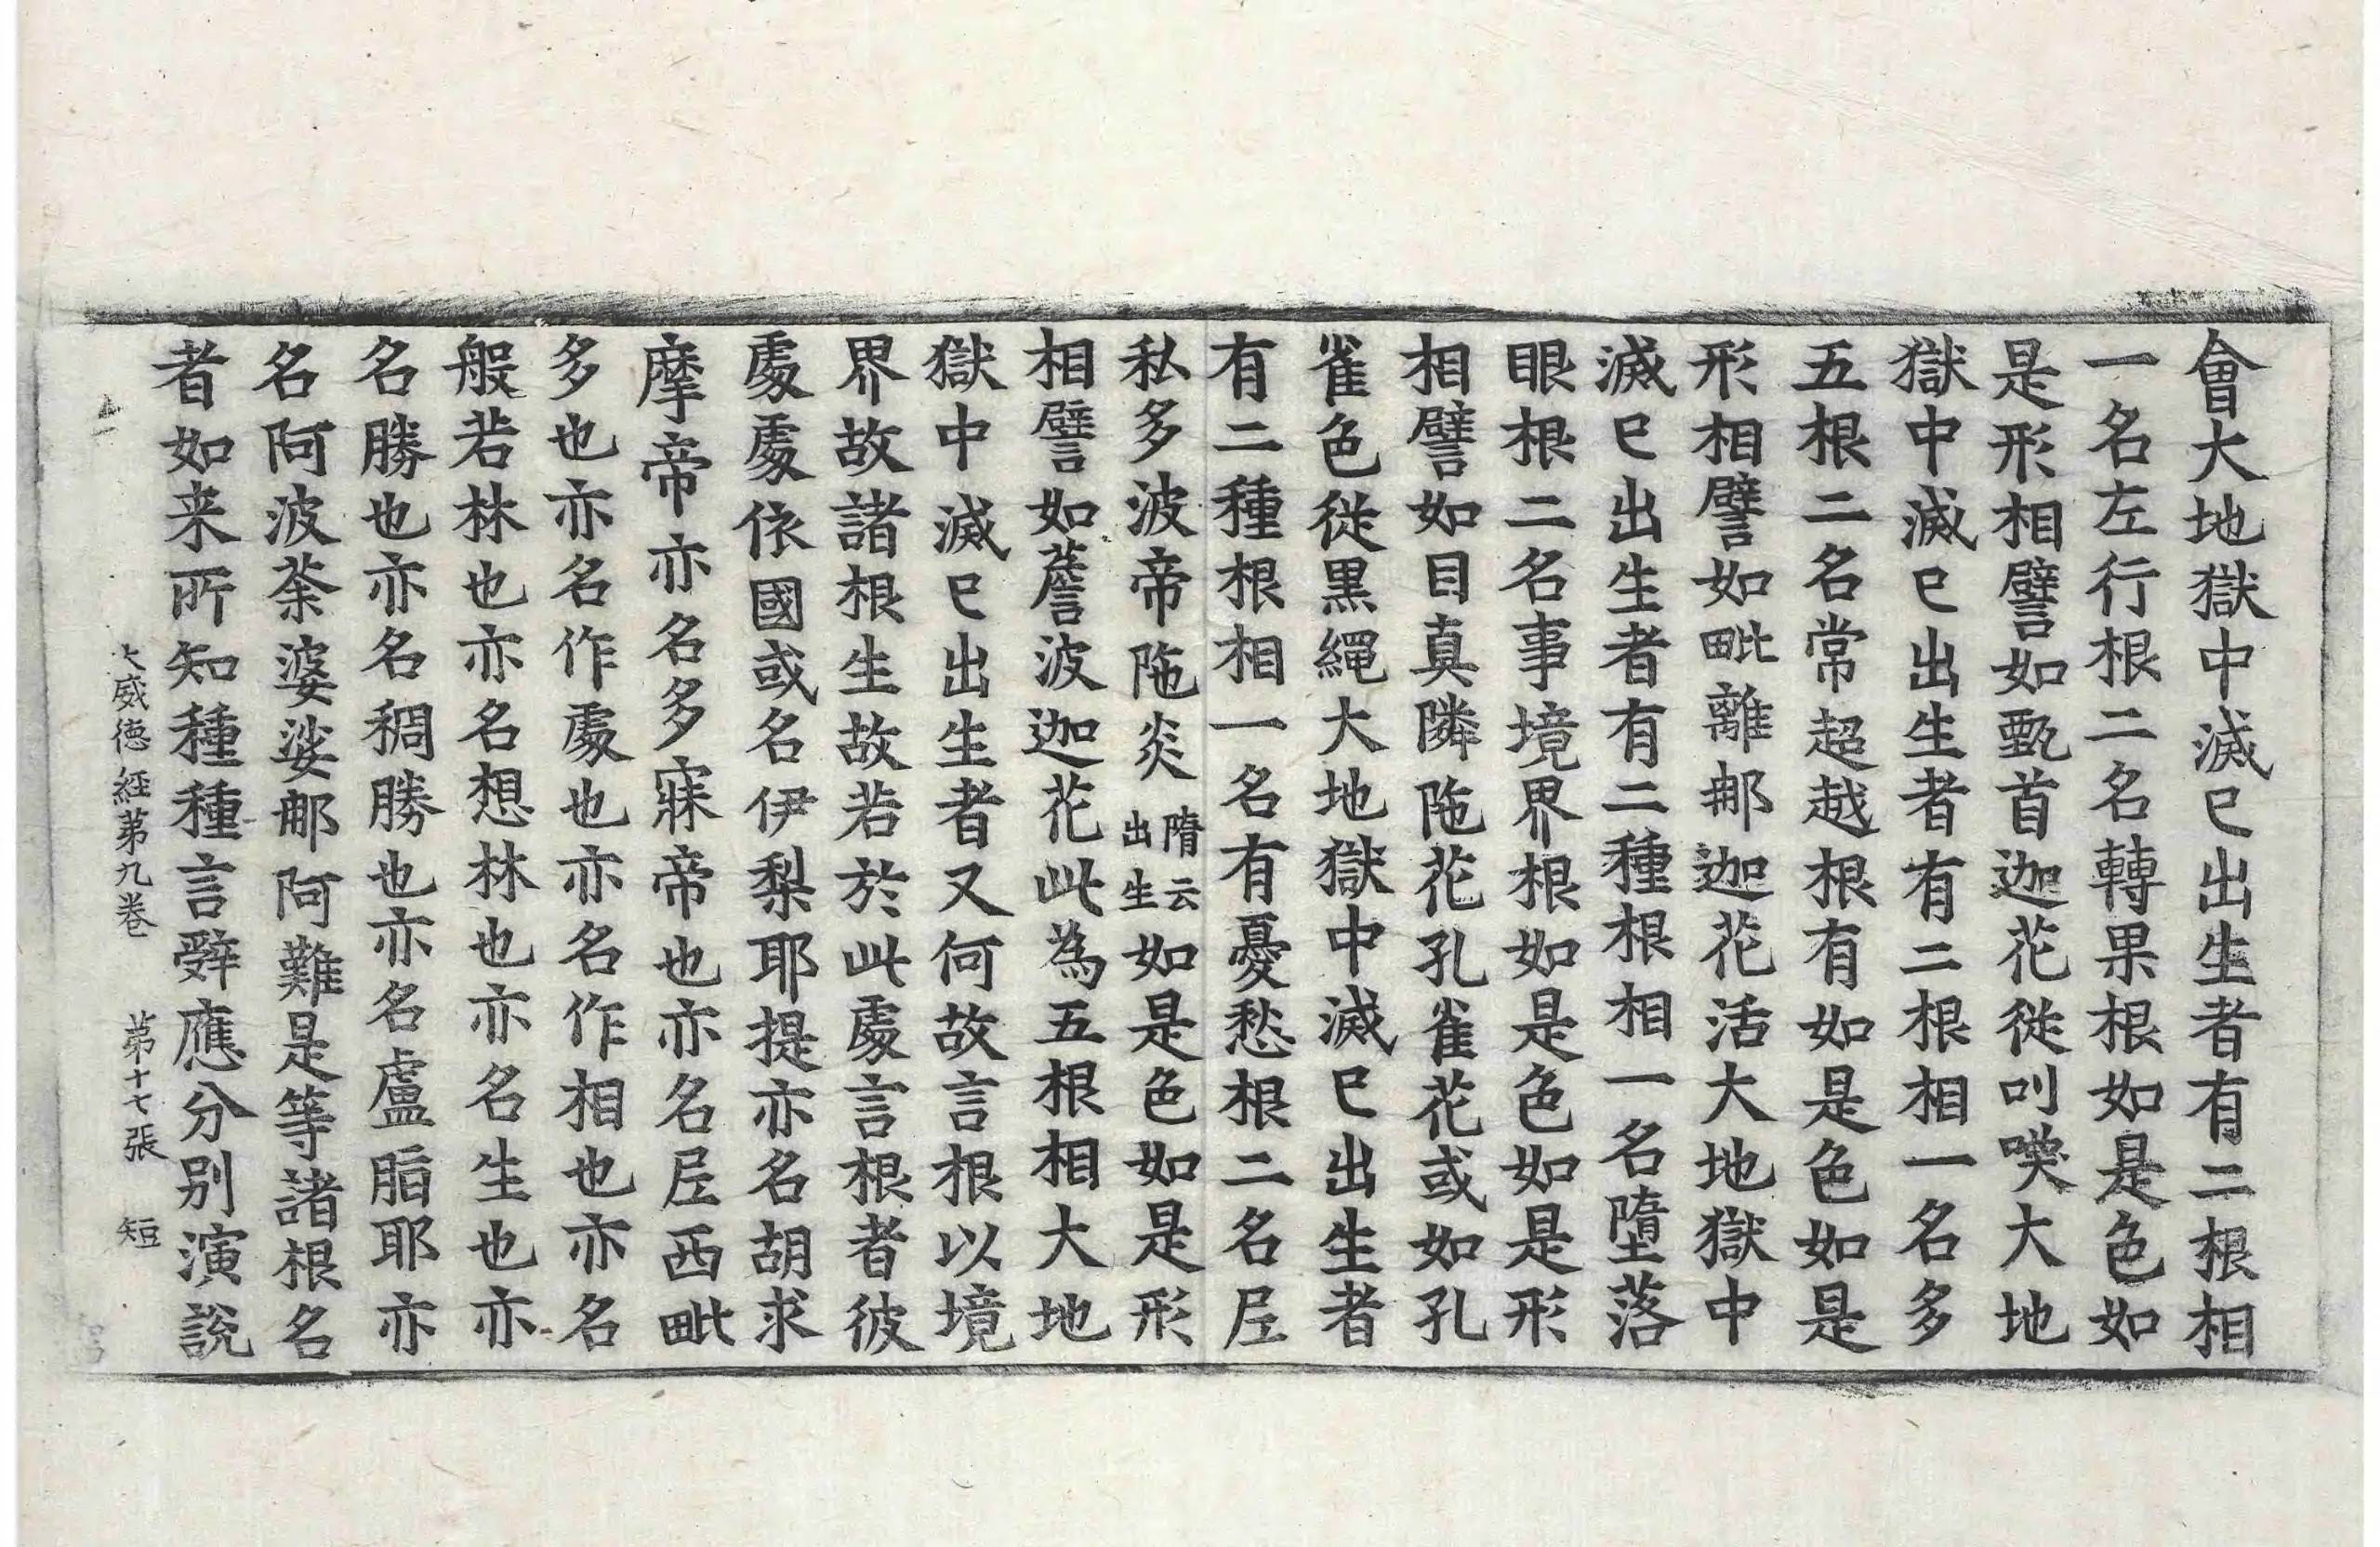 會大地獄中滅已出生者有二根相
一名左行根二名轉果根如是色如
是形相譬如甄首迦花從叫喚大地
獄中滅已出生者有二根相一名多
五根二名常超越根有如是色如是
形相譬如毗離那迦花活大地獄中
滅已出生者有二種根相一名墮落
眼根二名事境界根如是色如是形
相譬如目真隣陁花孔雀花或如孔
雀色從黒繩大地獄中滅已出生者
有二種根相一名有憂愁根二名𡰱
私多波帝陁炎隋云出生如是色如是形
相譬如薝波迦花此為五根相大地
獄中滅已出生者又何故言根以境
界故諸根生故若於此處言根者彼
處處依國或名伊梨耶提亦名胡求
摩帝亦名多寐帝也亦名𡰱西毗
多也亦名作處也亦名作相也亦名
般若林也亦名想林也亦名生也亦
名勝也亦名稠勝也亦名盧脂耶亦
名阿波荼婆娑那阿難是等諸根名
者如来所知種種言辝應分別演說
大威德経第九卷 第十七張 短